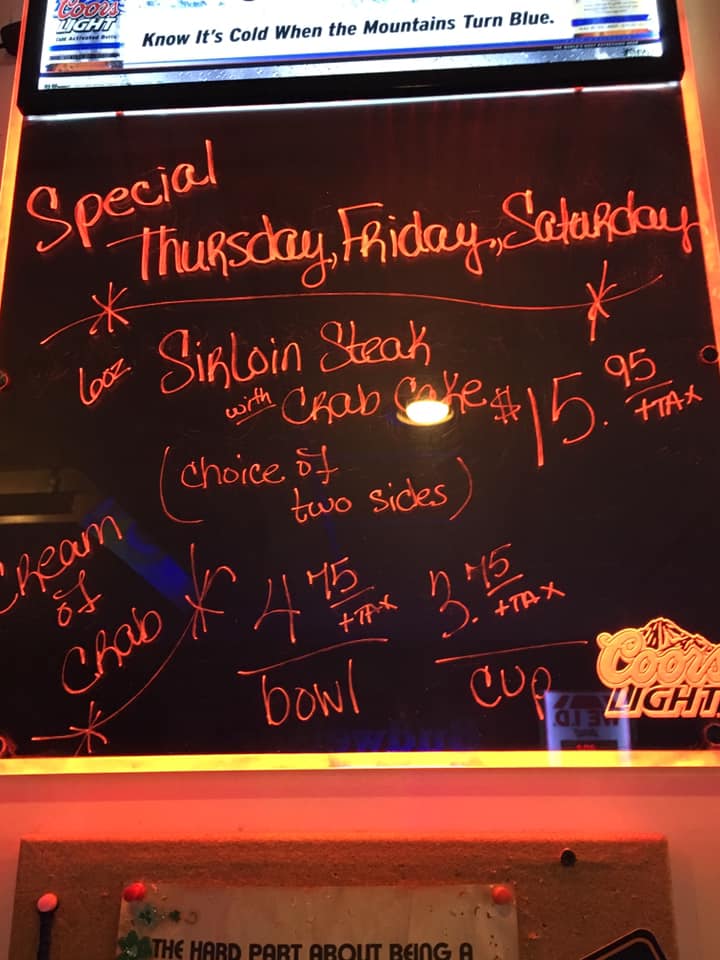 Coors
LIGHT
Know It's Cold When the Mountains Turn Blue.
Special
Thursday, Friday, Saturday
6oz Sirloin Steak
with Crab Cake $15.95 +TAX
(choice of
two sides)
Cream
of
Crab
4 75 +TAX 3.75 +TAX
bowl cup
Coors
LIGHT
WE I.D.
THE HARD PART ABOUT BEING A